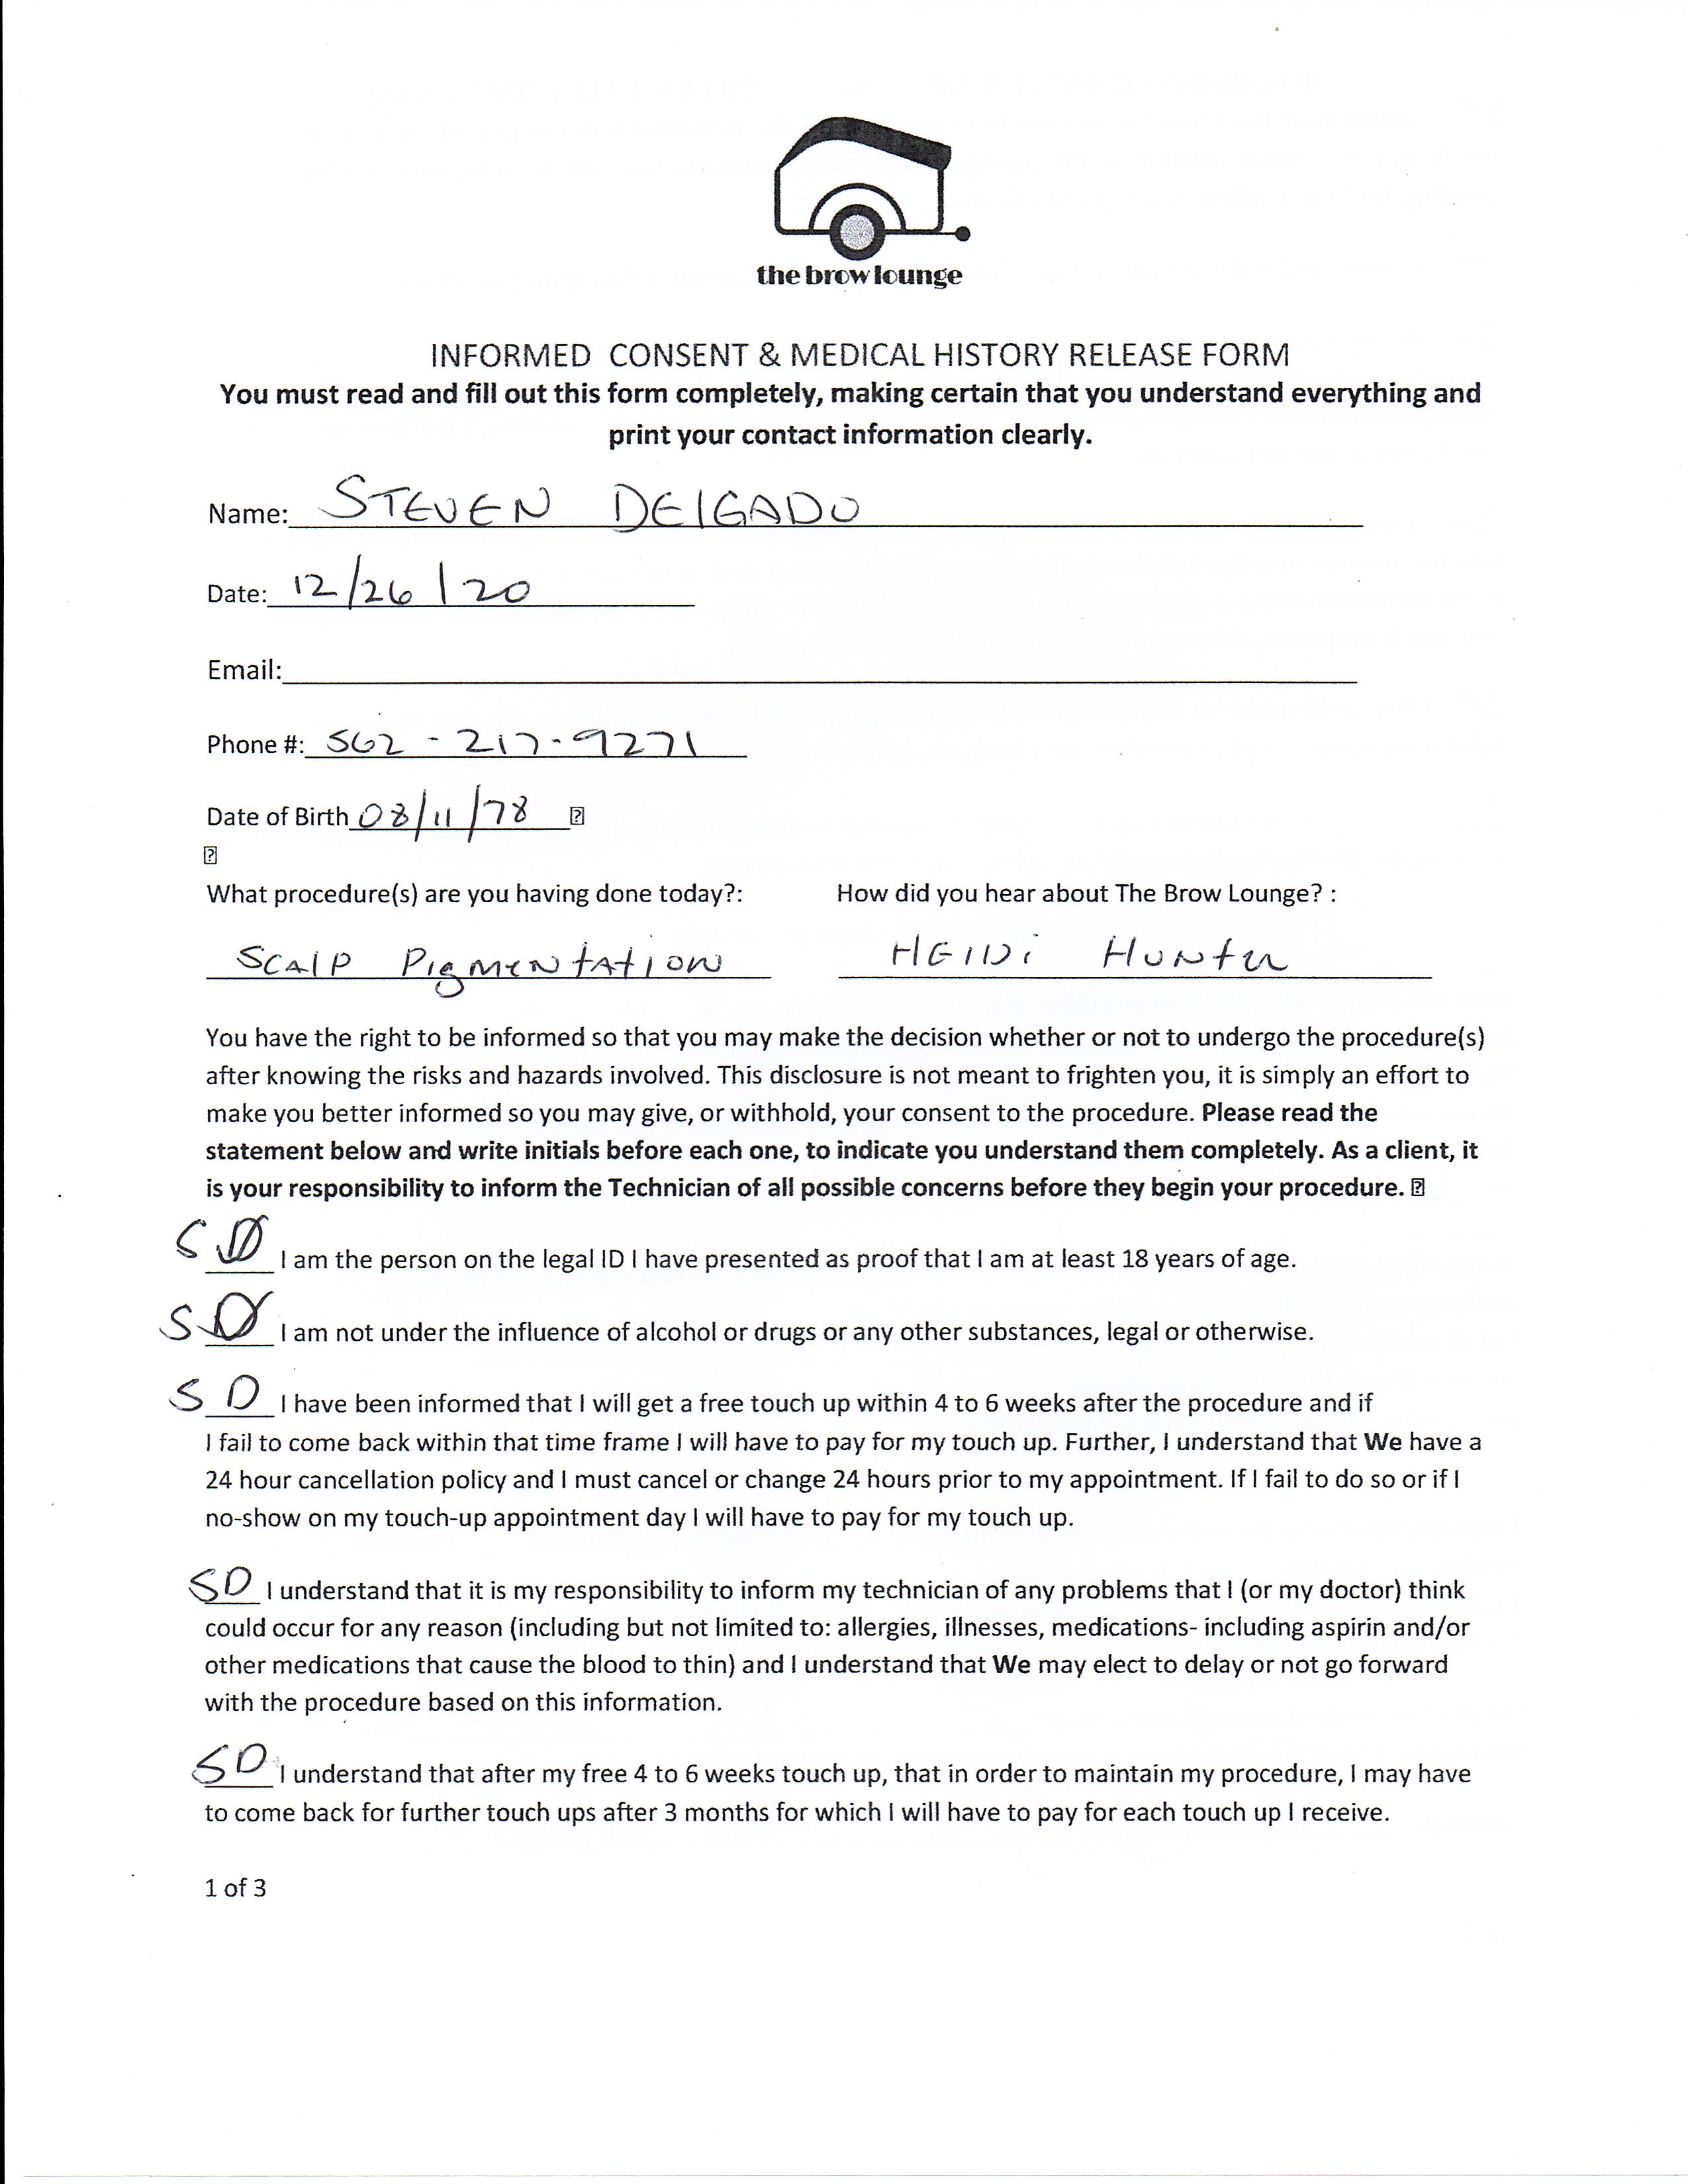 the brow lounge
INFORMED CONSENT & MEDICAL HISTORY RELEASE FORM
You must read and fill out this form completely, making certain that you understand everything and
print your contact information clearly.
Name: STEVEN DElGADO
Date: 12/26/20
Email:
Phone #: 562-217-9271
Date of Birth 08/11/78
What procedure(s) are you having done today?: How did you hear about The Brow Lounge? :
SCAlP PigmeNtAtioN HEIDi HuNter
You have the right to be informed so that you may make the decision whether or not to undergo the procedure(s)
after knowing the risks and hazards involved. This disclosure is not meant to frighten you, it is simply an effort to
make you better informed so you may give, or withhold, your consent to the procedure. Please read the
statement below and write initials before each one, to indicate you understand them completely. As a client, it
is your responsibility to inform the Technician of all possible concerns before they begin your procedure.
SD I am the person on the legal ID I have presented as proof that I am at least 18 years of age.
SD I am not under the influence of alcohol or drugs or any other substances, legal or otherwise.
SD I have been informed that I will get a free touch up within 4 to 6 weeks after the procedure and if
I fail to come back within that time frame I will have to pay for my touch up. Further, I understand that We have a
24 hour cancellation policy and I must cancel or change 24 hours prior to my appointment. If I fail to do so or if I
no-show on my touch-up appointment day I will have to pay for my touch up.
SD I understand that it is my responsibility to inform my technician of any problems that I (or my doctor) think
could occur for any reason (including but not limited to: allergies, illnesses, medications- including aspirin and/or
other medications that cause the blood to thin) and I understand that We may elect to delay or not go forward
with the procedure based on this information.
SD I understand that after my free 4 to 6 weeks touch up, that in order to maintain my procedure, I may have
to come back for further touch ups after 3 months for which I will have to pay for each touch up I receive.
1 of 3